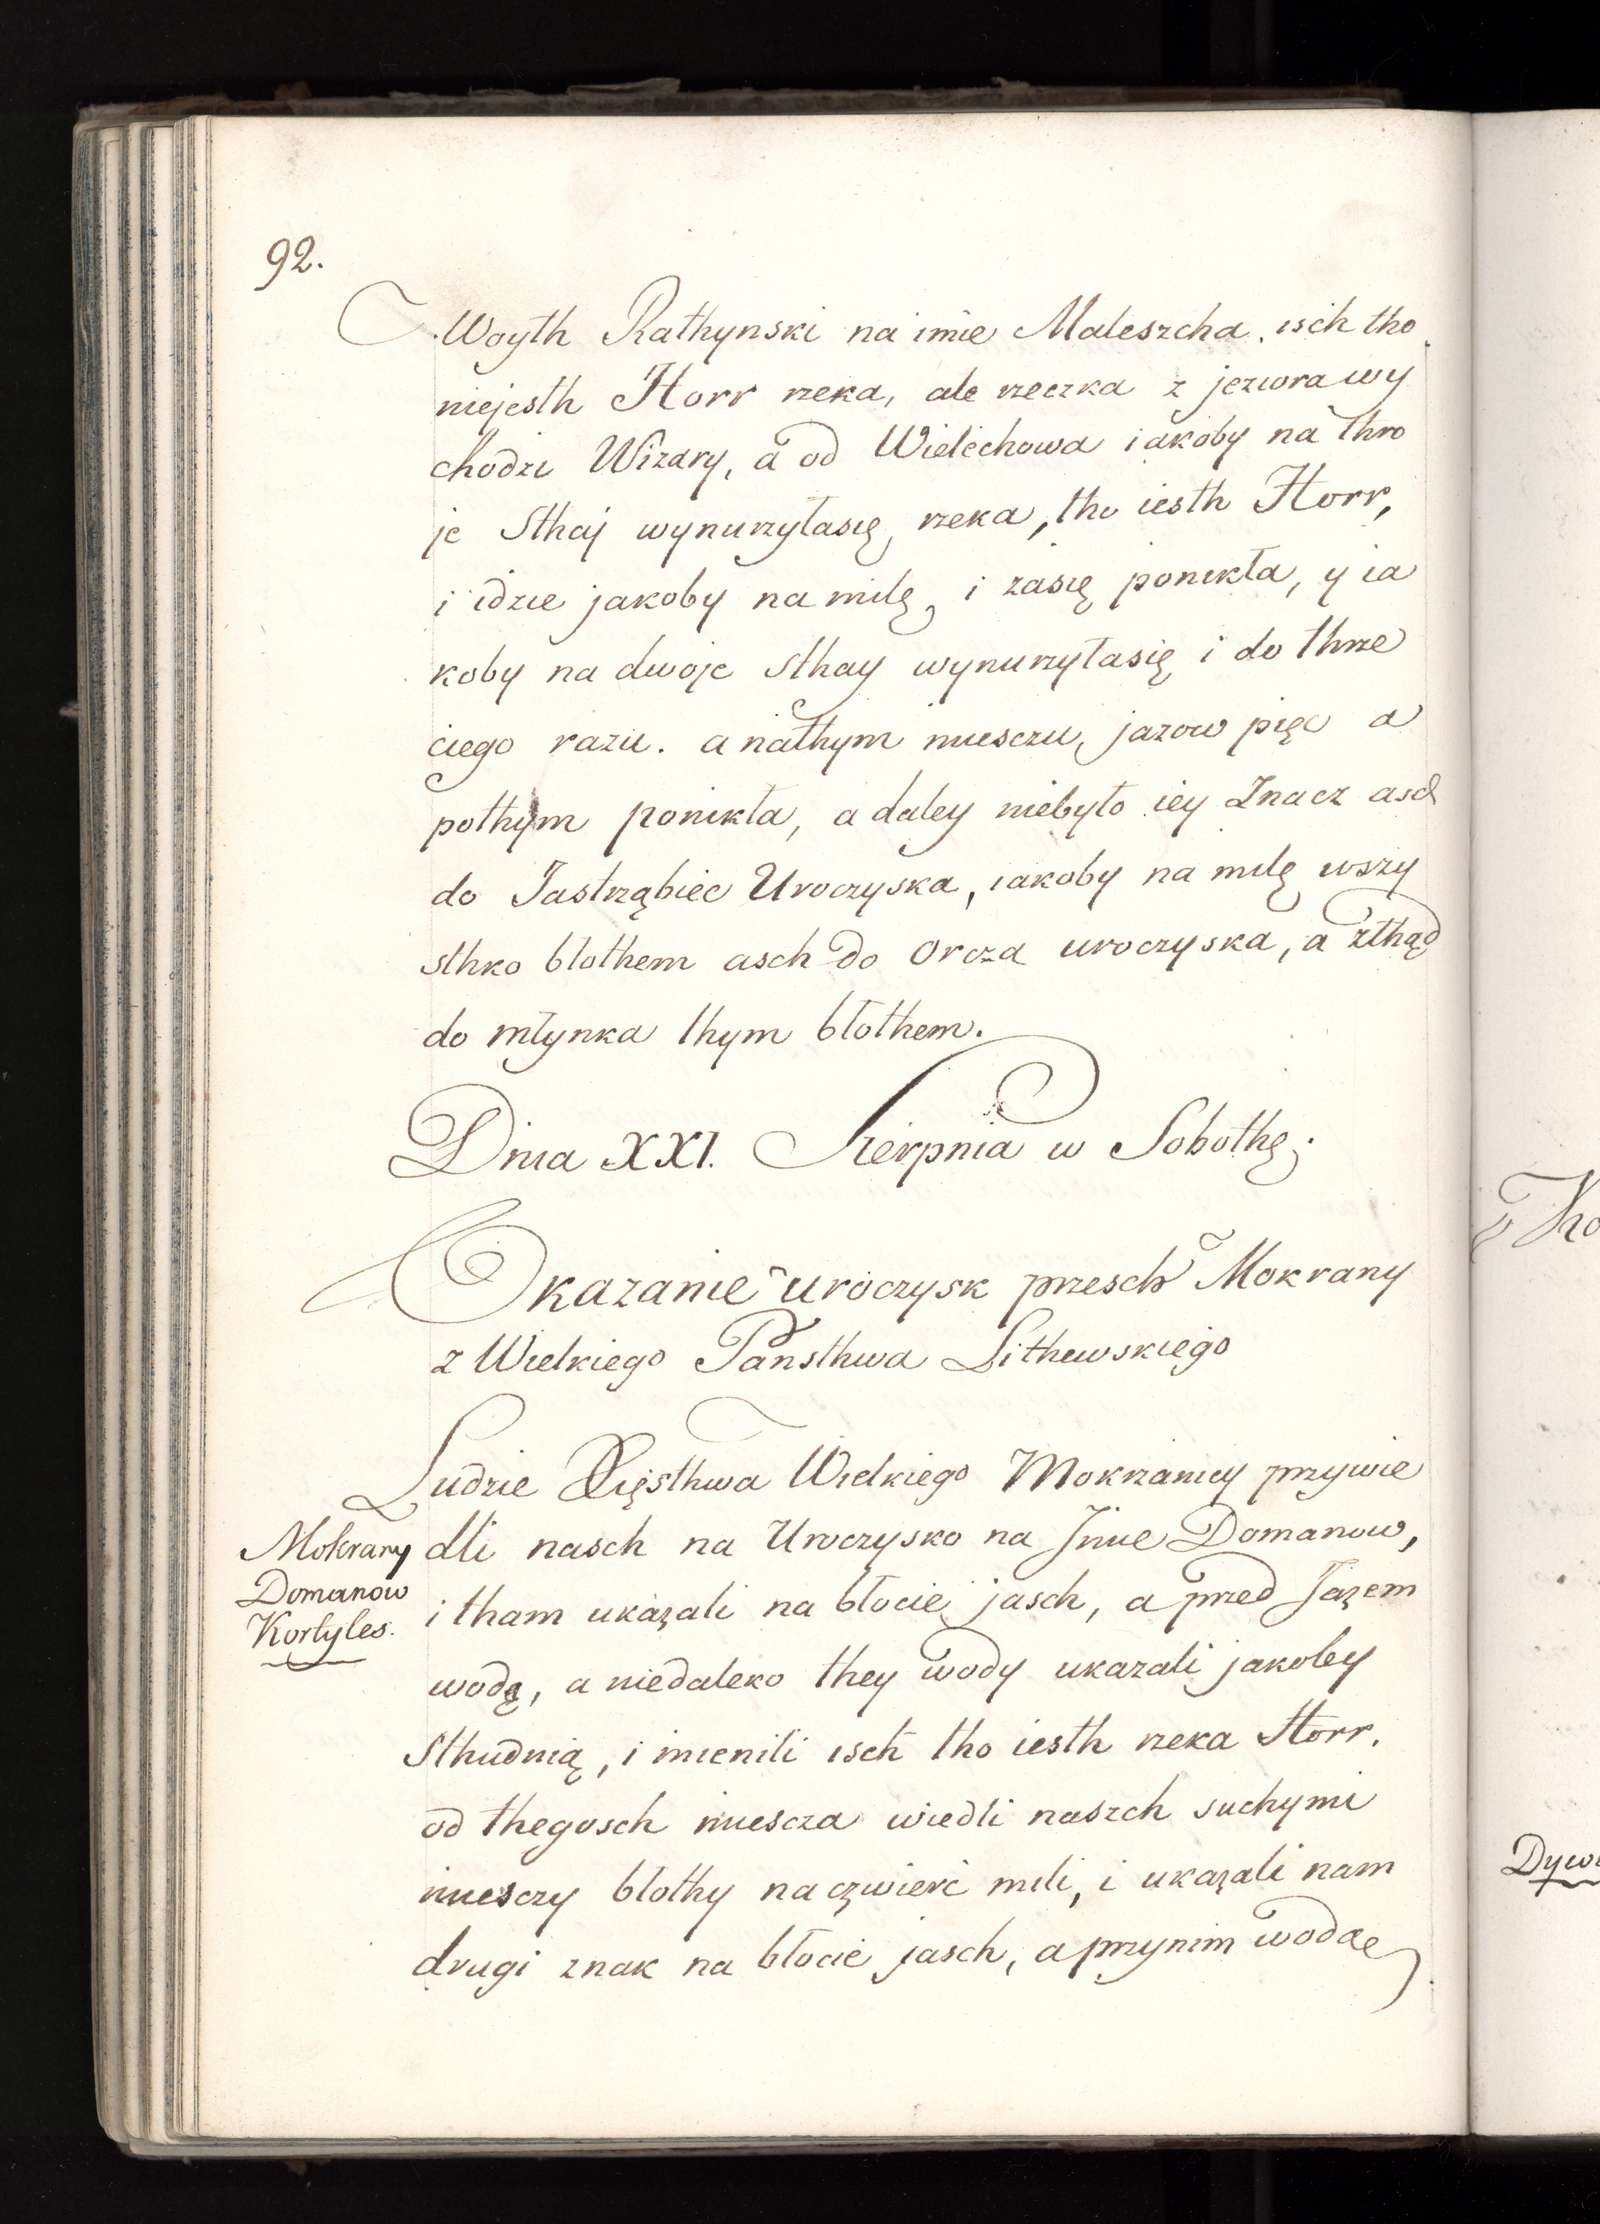 92.
Woyth Rathynski na imie Maleszcha. isch tho
niejesth Horr rzeka, ale rzeczka z jeziora wy
chodzi Wizary, a od Wielichowa iakoby na thro
je Sthaj wynurzyłasię rzeka, tho iesth Horr,
i idzie jakoby na milę i zasię ponikła, y ia
koby na dwoje Sthay wynurzyłasię i do thrze
ciego razu. a nathym miesczu, jazow pięc a
pothym ponikła, a daley niebyło iey Znacz asch
do Jastrząbiec Uroczyska, iakoby na milę wszy
sthko błothem asch do Orcza uroczyska, a zthąd
do młynka thym błothem.
Dnia XXI. Sierpnia w Sobothę.
Okazanie uroczysk przesch Mokrany
z Wielkiego Pansthwa Lithewskiego
Ludzie Xięsthwa Wielkiego Mokrzanicy przywie
dli nasch na Uroczysko na Jmie Domanow,
i tham ukazali na błocie jasch, a pred Jazem
wodę, a niedaleko they wody ukazali jakoby
Sthudnią, i mienili isch tho iesth rzeka Horr.
od thegosch miescza wiedli naszch suchymi
miesczy błothy na czwierć mili, i ukazali nam
drugi znak na błocie jasch, a przynim wodae
Mokrany
Domanow
Kortyles.